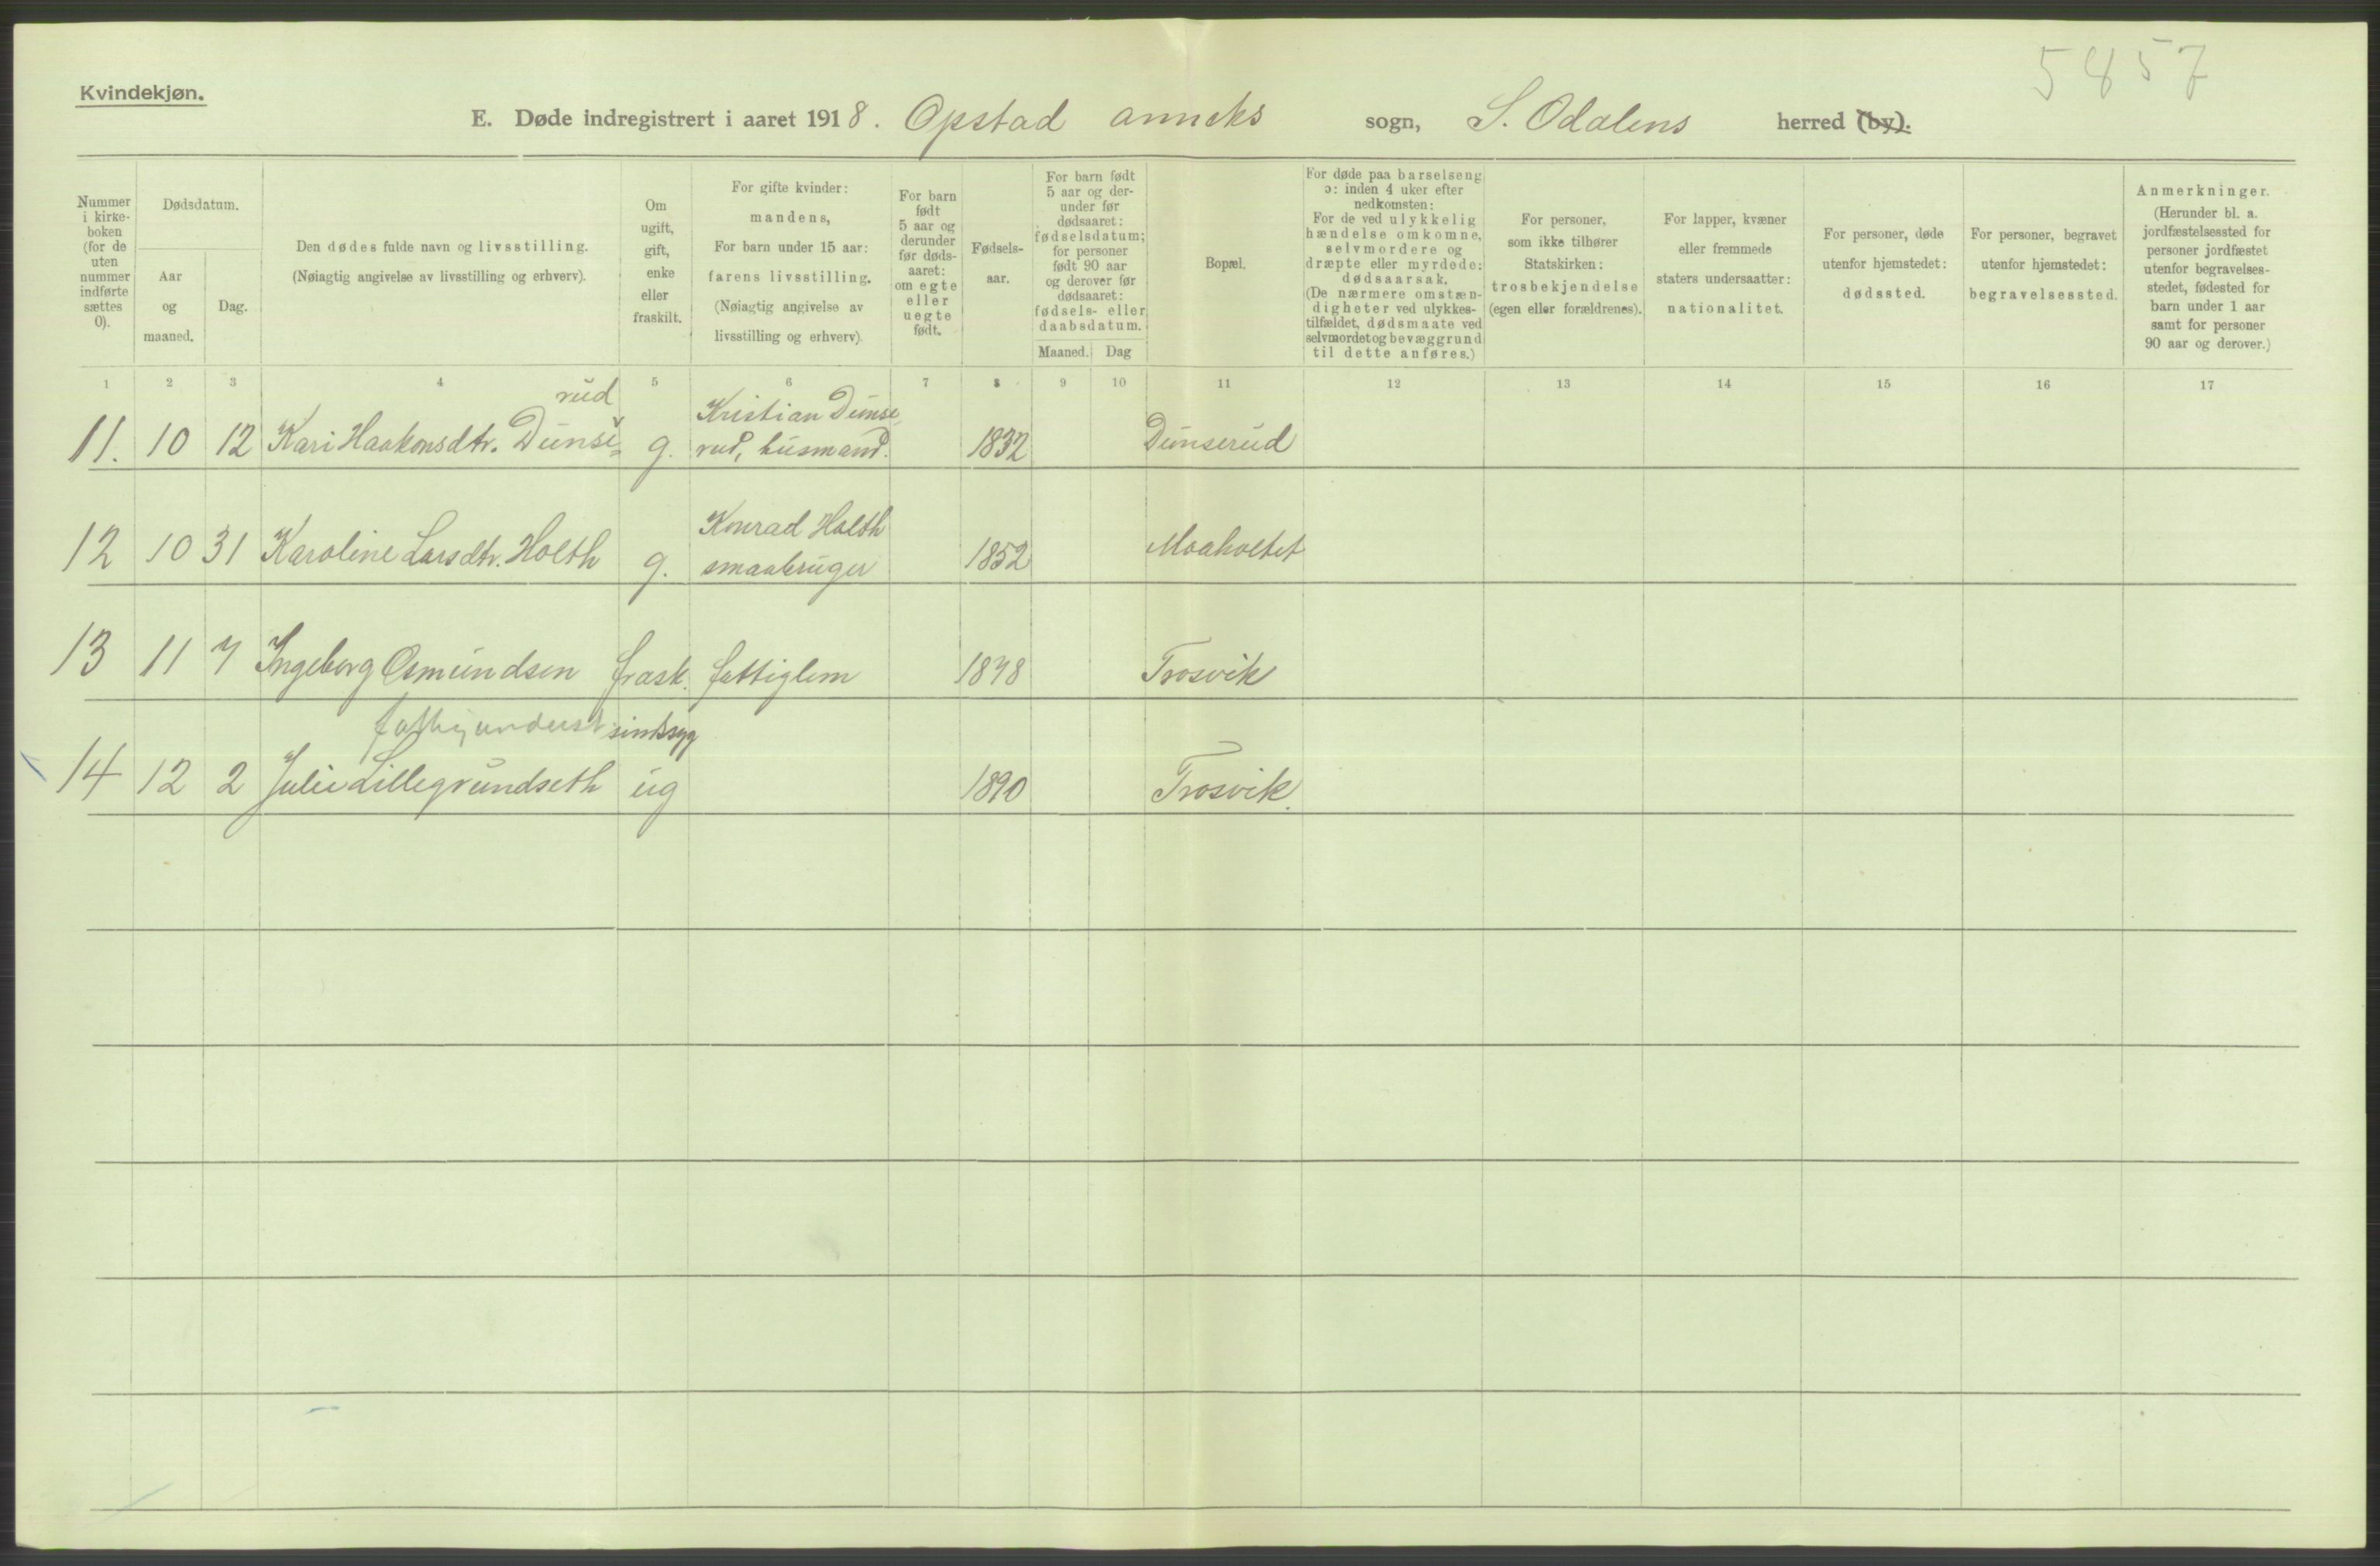 5857
Kvindekjøn.
E. Døde indregistrert i aaret 1918. Opstad anneks sogn, S. Odalens herred (by).
Nummer i kirkeboken (for de uten nummer indførte sættes 0).
Dødsdatum.
Aar og maaned.
Dag.
Den dødes fulde navn og livsstilling.
(Nøiagtig angivelse av livsstilling og erhverv).
Om ugift, gift, enke eller fraskilt.
For gifte kvinder: mandens,
For barn under 15 aar: farens livsstilling.
(Nøiagtig angivelse av livsstilling og erhverv).
For barn født 5 aar og derunder før dødsaaret: om egte eller uegte født.
Fødselsaar.
For barn født 5 aar og derunder før dødsaaret: fødselsdatum; for personer født 90 aar og derover før dødsaaret: fødsels- eller daabsdatum.
Maaned. Dag
Bopæl.
For døde paa barselseng ɔ: inden 4 uker efter nedkomsten: For de ved ulykkelig hændelse omkomne, selvmordere og dræpte eller myrdede: dødsaarsak. (De nærmere omstændigheter ved ulykkestilfældet, dødsmaate ved selvmordet og bevæggrund til dette anføres.)
For personer, som ikke tilhører Statskirken: trosbekjendelse (egen eller forældrenes).
For lapper, kvæner eller fremmede staters undersaatter: nationalitet.
For personer, døde utenfor hjemstedet: dødssted.
For personer, begravet utenfor hjemstedet: begravelsessted.
Anmerkninger.
(Herunder bl. a. jordfæstelsessted for personer jordfæstet utenfor begravelsesstedet, fødested for barn under 1 aar samt for personer 90 aar og derover.)
1 2 3 4 5 6 7 8 9 10 11 12 13 14 15 16 17
rud Kristian Dunse-
11. 10 12 Kari Haakonsdtr. Dunse= g. rud, husmand. 1832 Dunserud
Konrad Holth
12 10 31 Karoline Larsdtr. Holth g. smaabruger 1852 Moaholtet
13 11 7 Ingeborg Osmundsen frask. fattiglem 1848 Trosvik
fattigunderst sindssyg
14 12 2 Julie Lillegrundseth ug 1890 Trosvik.